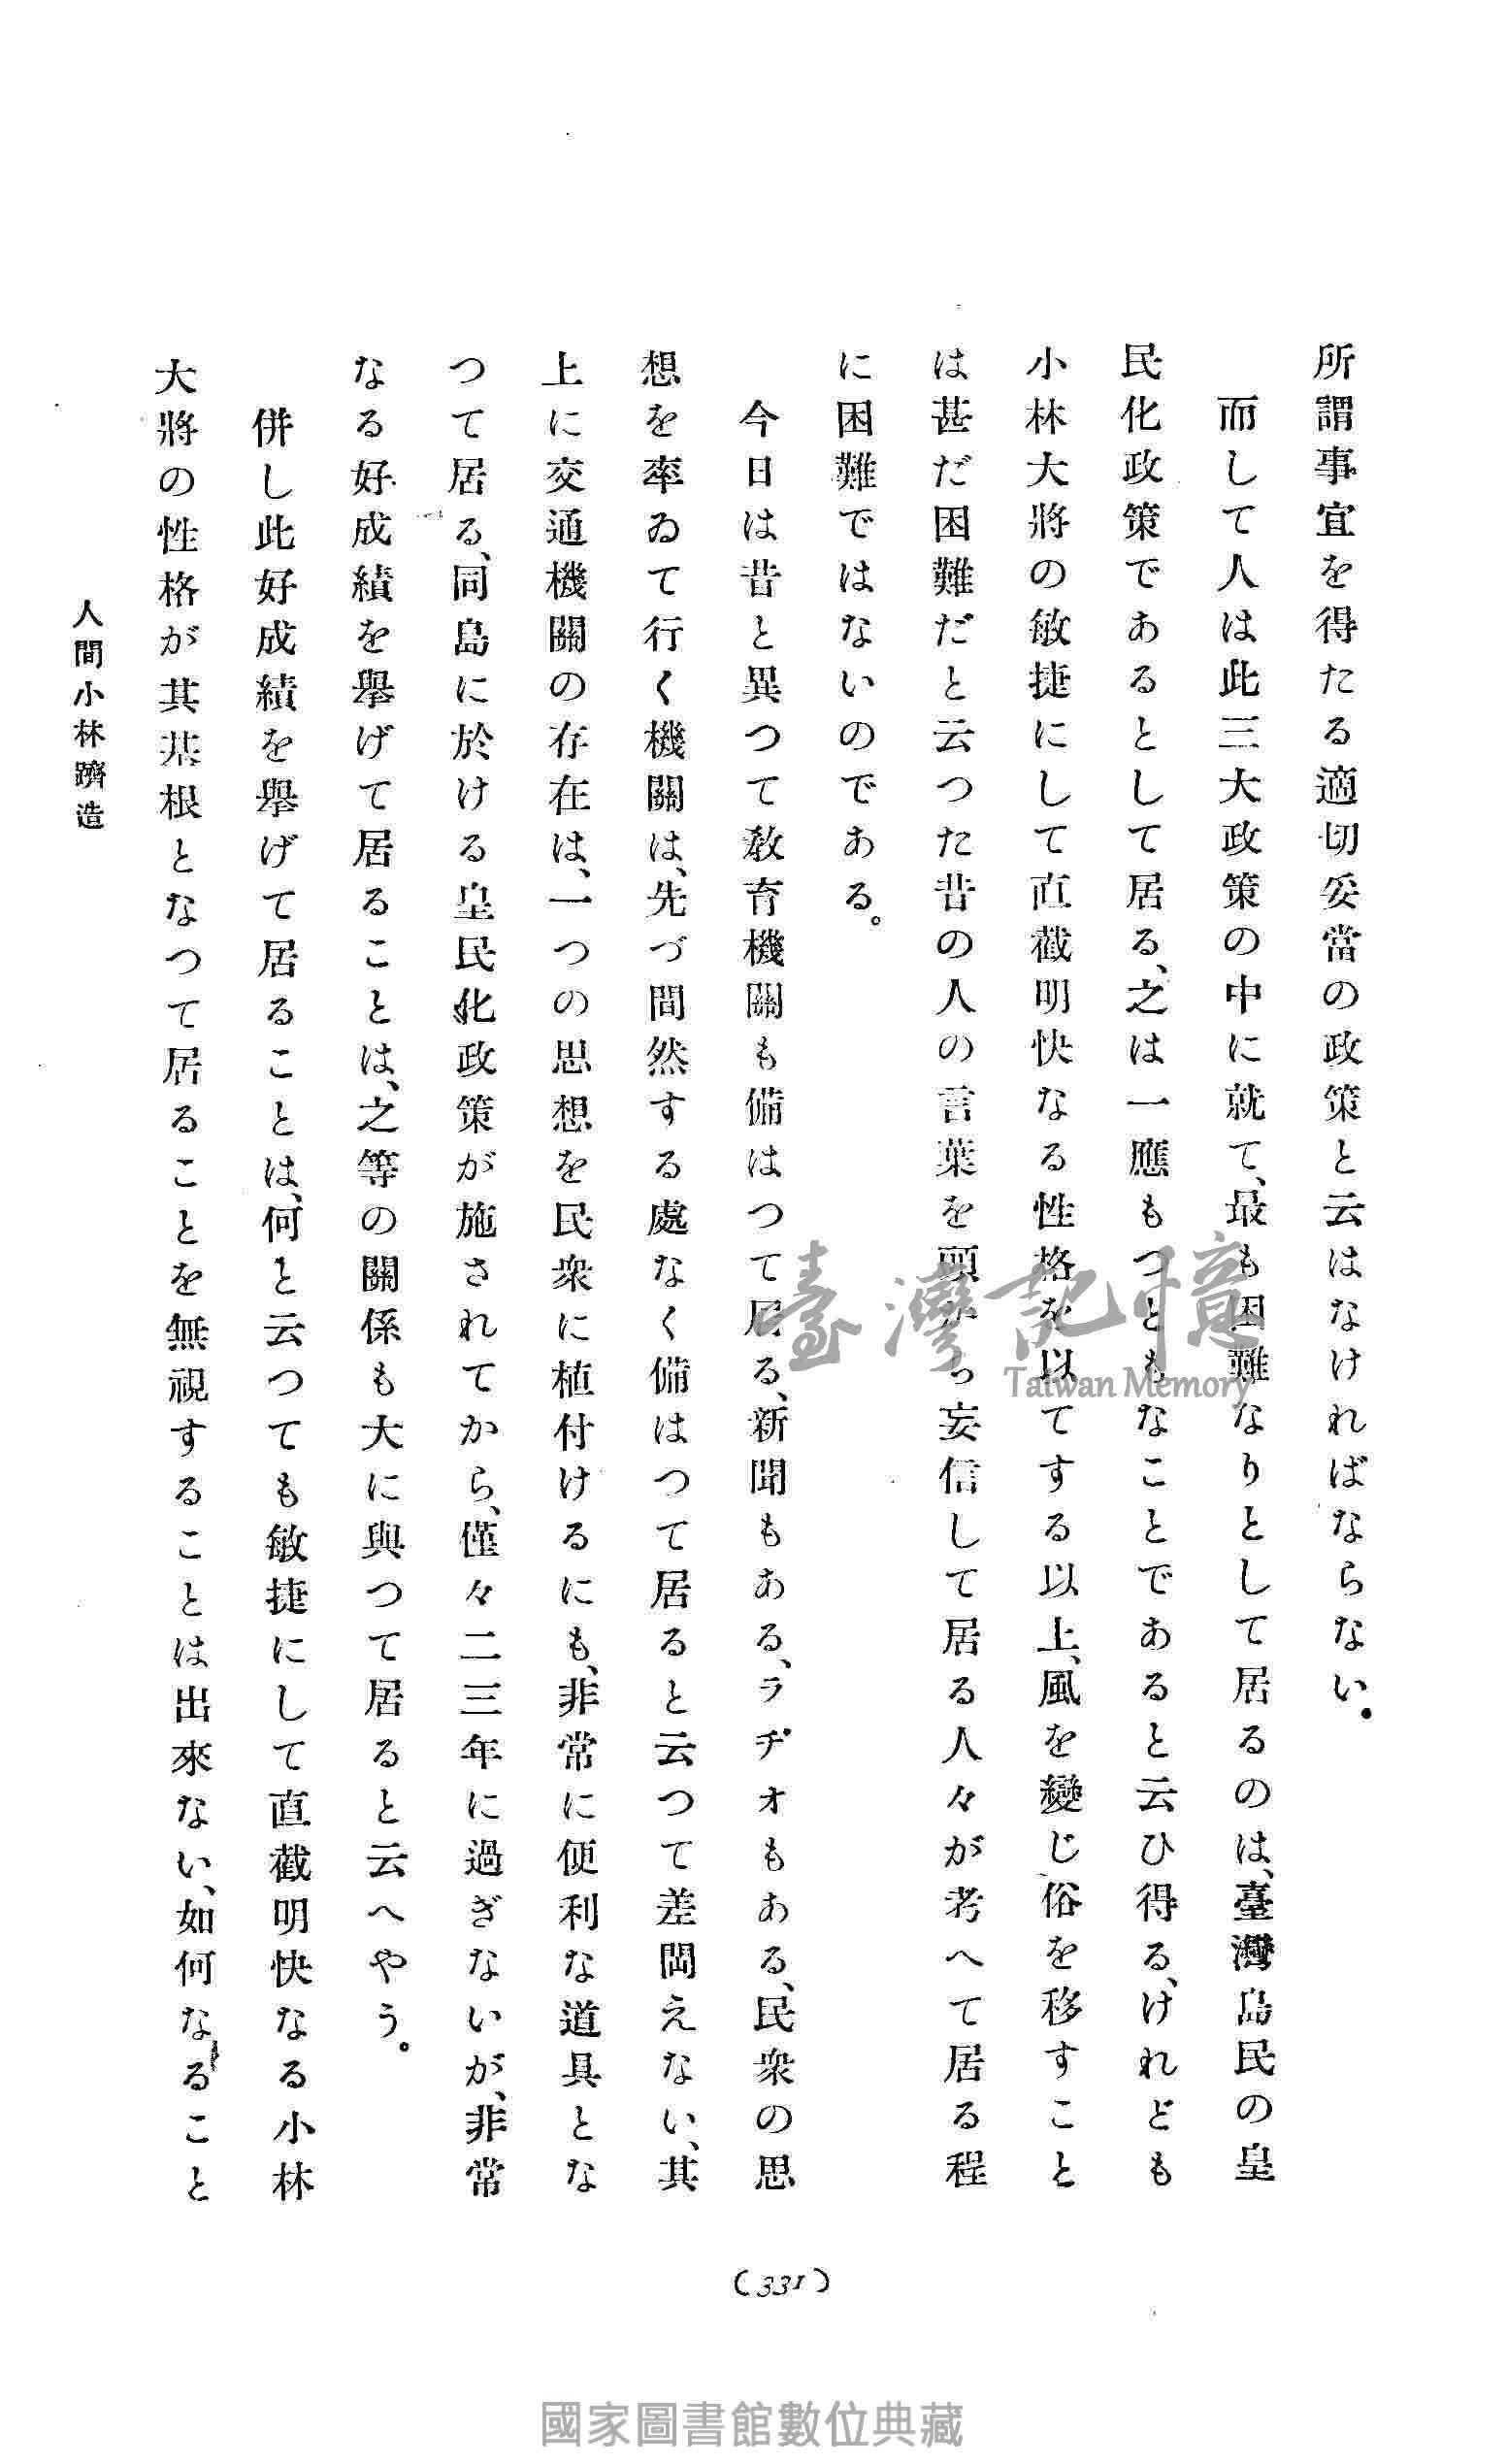 所謂事宜を得たる適切妥當の政策と云はなければならない。
而して人は此三大政策の中に就て、最も困難なりとして居るのは、臺灣島民の皇
民化政策であるとして居る、之は一應もつともなことであると云ひ得る、けれども
小林大將の敏捷にして直截明快なる性格を以てする以上、風を變じ俗を移すこと
は甚だ困難だと云つた昔の人の言葉を頭から妄信して居る人々が考へて居る程
に困難ではないのである。
今日は昔と異つて敎育機關も備はつて居る、新聞もある、ラヂオもある、民衆の思
想を率ゐて行く機關は、先づ間然する處なく備はつて居ると云つて差閊えない、其
上に交通機關の存在は、一つの思想を民衆に植付けるにも、非常に便利な道具とな
つて居る、同島に於ける皇民化政策が施されてから、僅々二三年に過ぎないが、非常
なる好成績を擧げて居ることは、之等の關係も大に與つて居ると云へやう。
併し此好成績を擧げて居ることは、何と云つても敏捷にして直截明快なる小林
大將の性格が其基根となつて居ることを無視することは出來ない、如何なること
人間小林躋造
(331)
臺灣記憶
Taiwan Memory
國家圖書館數位典藏